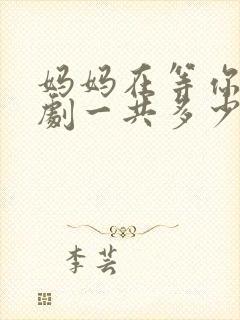 妈妈在等你
劇一共多少
李芸